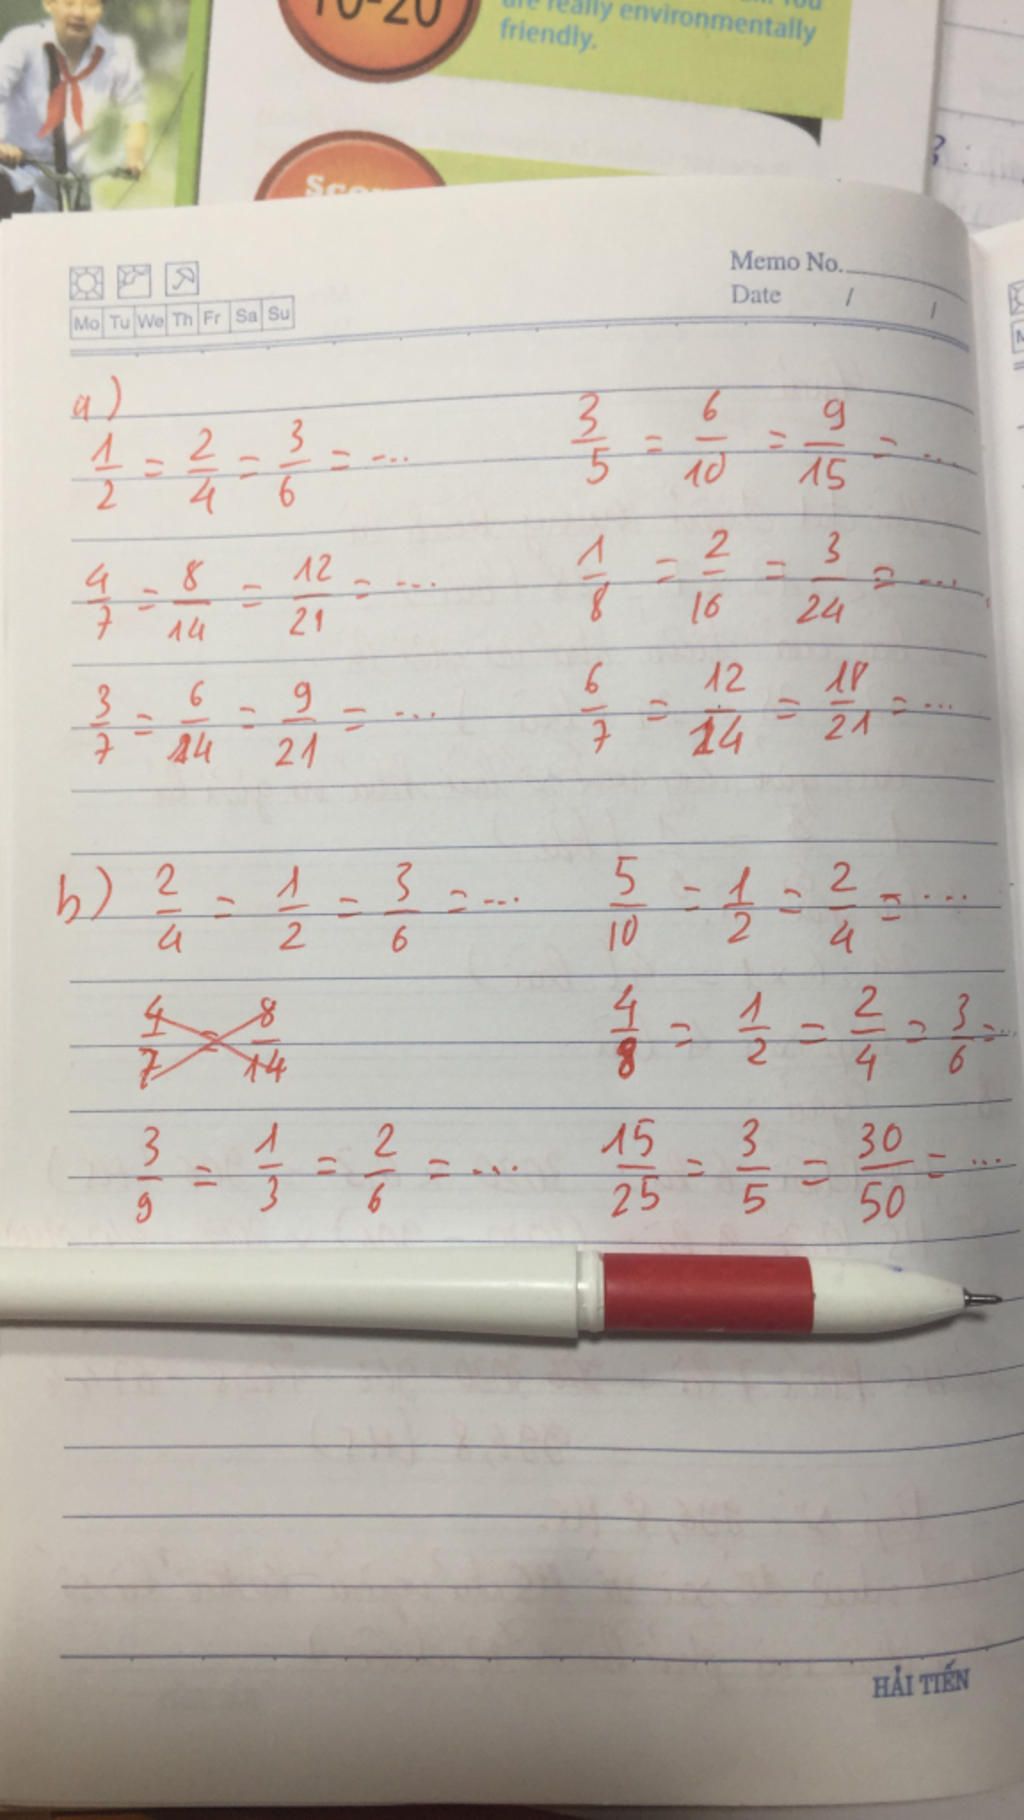 10-20
are really environmentally
friendly.
Memo No.
Date / /
Mo Tu We Th Fr Sa Su
a)
1/2 = 2/4 = 3/6 = ... 3/5 = 6/10 = 9/15 = ...
4/7 = 8/14 = 12/21 = ... 1/8 = 2/16 = 3/24 = ...
3/7 = 6/14 = 9/21 = ... 6/7 = 12/14 = 18/21 = ...
b) 2/4 = 1/2 = 3/6 = ... 5/10 = 1/2 = 2/4 = ...
4/7 = 8/14 4/8 = 1/2 = 2/4 = 3/6 = ...
3/9 = 1/3 = 2/6 = ... 15/25 = 3/5 = 30/50 = ...
HẢI TIẾN